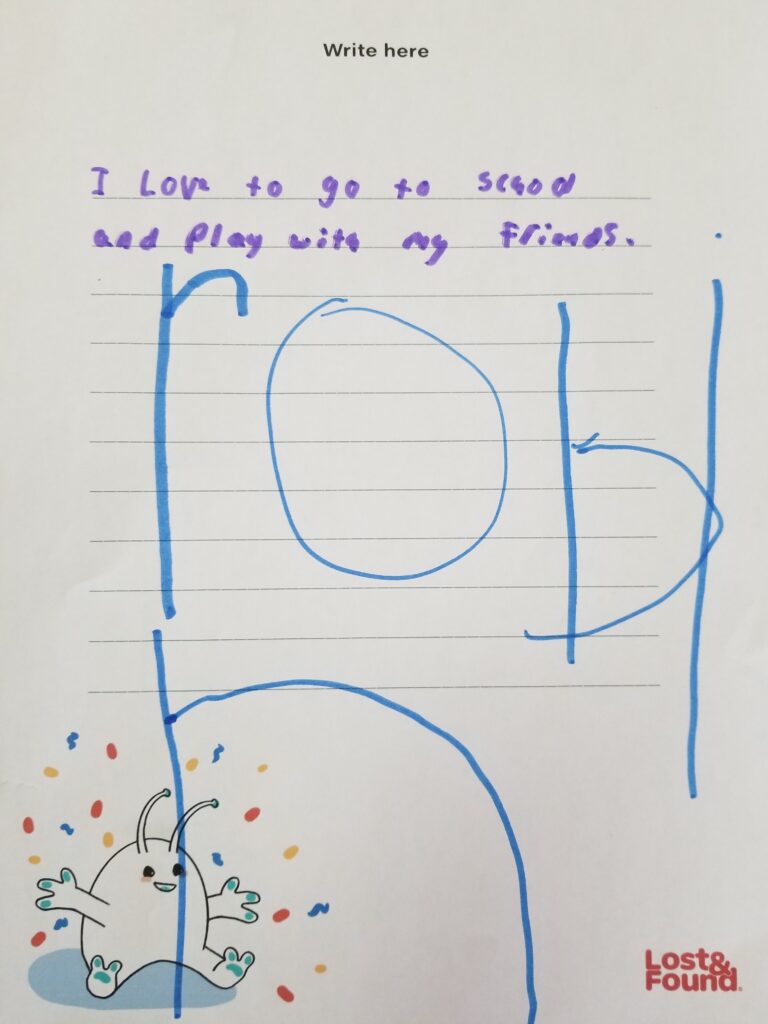 Write here
I Love to go to school
and Play with my friends.
robi
n
Lost&
Found